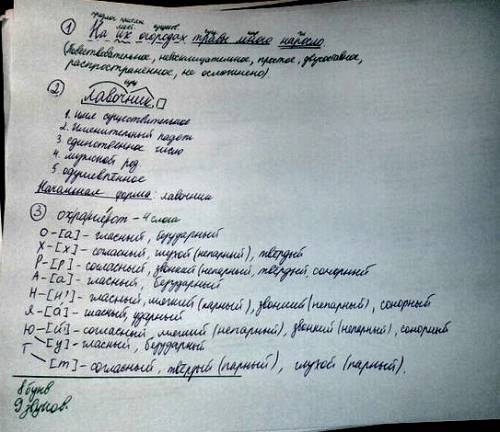 ① На их огородах травы много наросло.
(повествовательное, невосклицательное, простое, двусоставное,
распространённое, не осложнено)
② лавочник
1. имя существительное
2. именительный падеж
3. единственное число
4. мужской род
5. одушевлённое
Начальная форма: лавочник
③ охраняют - 4 слога
О-[а]- гласный, безударный
Х-[х]- согласный, глухой (непарный), твёрдый
Р-[р]- согласный, звонкий (непарный), твёрдый, сонорный
А-[а]- гласный, безударный
Н-[н']- гласный, мягкий (парный), звонкий (непарный), сонорный
Я-[а]- гласный, ударный
Ю-[й']- согласный, мягкий (непарный), звонкий (непарный), сонорный
[у]- гласный, безударный
Т-[т]- согласный, твёрдый (парный), глухой (парный).
8 букв
9 звуков.